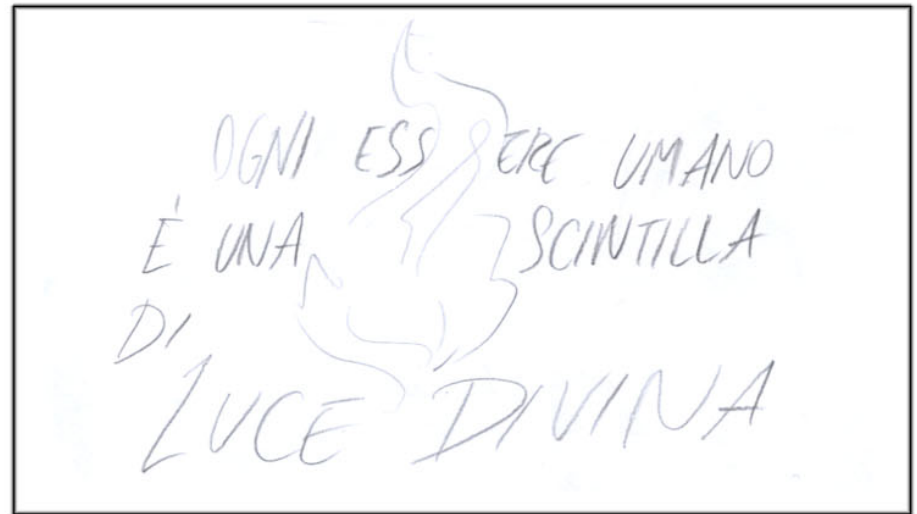 OGNI ESSERE UMANO
È UNA SCINTILLA
DI
LUCE DIVINA